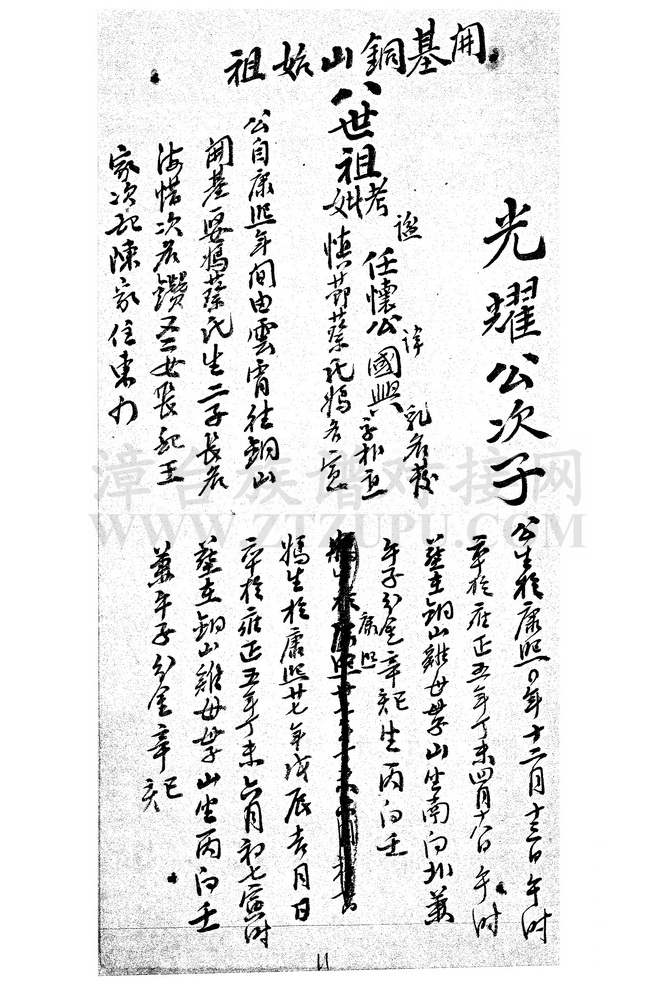 開基銅山始祖
光耀公次子
公生於康熙〇年十二月十三日午時
卒於雍正五年丁未四月十八日午時
葬在銅山雞母髻山坐南向北兼
午子分金辛亥辛巳坐丙向壬
八世祖
考 諡任懷公諱國興字朴直乳名
妣慎節蔡氏媽名
康熙
媽生於康熙廿七年戊辰吉月日
卒於雍正五年丁未六月初七寅時
葬在銅山雞母髻山坐丙向壬
兼午子分金辛亥辛巳
公自康熙年間由雲霄徙銅山
開基娶媽蔡氏生二子長名
海惜次名鑽又二女長配王
家次配陳家住東
漳台族谱对接网
WWW.ZTZUPU.COM
11